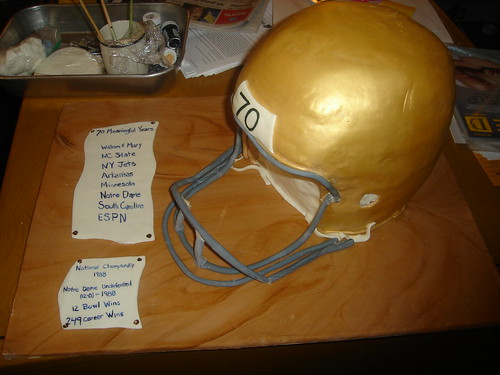 70
70 Meaningful Years
William & Mary
NC State
NY Jets
Arkansas
Minnesota
Notre Dame
South Carolina
ESPN
National Championship
1988
Notre Dame Undefeated
(12-0) - 1988
12 Bowl Wins
249 Career Wins